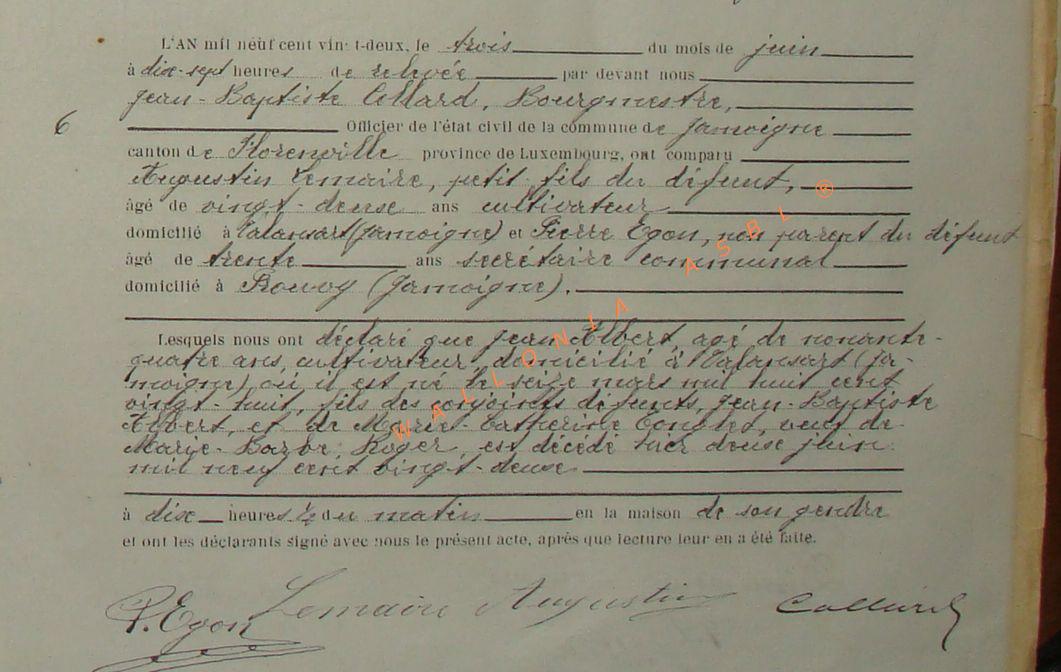 L'AN mil neuf cent vingt-deux, le trois du mois de juin
à dix-sept heures de relevée par devant nous
Jean-Baptiste Collard, Bourgmestre,
6 Officier de l'état civil de la commune de Jamoigne
canton de Florenville province de Luxembourg, ont comparu
Augustin Lemaire, petit-fils du défunt,
âgé de vingt-deuxe ans cultivateur
domicilié à Valansart (Jamoigne) et Pierre Egon, non parent du défunt
âgé de trente ans secrétaire communal
domicilié à Rouvoy (Jamoigne).
Lesquels nous ont déclaré que Jean Albert, agé de nonante-
quatre ans, cultivateur, domicilié à Valansart (Ja-
moigne) où il est né le seize mars mil huit cent
vingt-huit, fils des conjoints défunts, Jean-Baptiste
Albert, et de Marie-Catherine, veuf de
Marie-Barbe Roger, est décédé hier deuxe juin
mil neuf cent vingt-deuxe
à dix heures ½ du matin en la maison de son gendre
et ont les déclarants signé avec nous le présent acte, après que lecture leur en a été faite.
P. Egon Lemaire Augustin Collard
WALLONIA ASBL ®